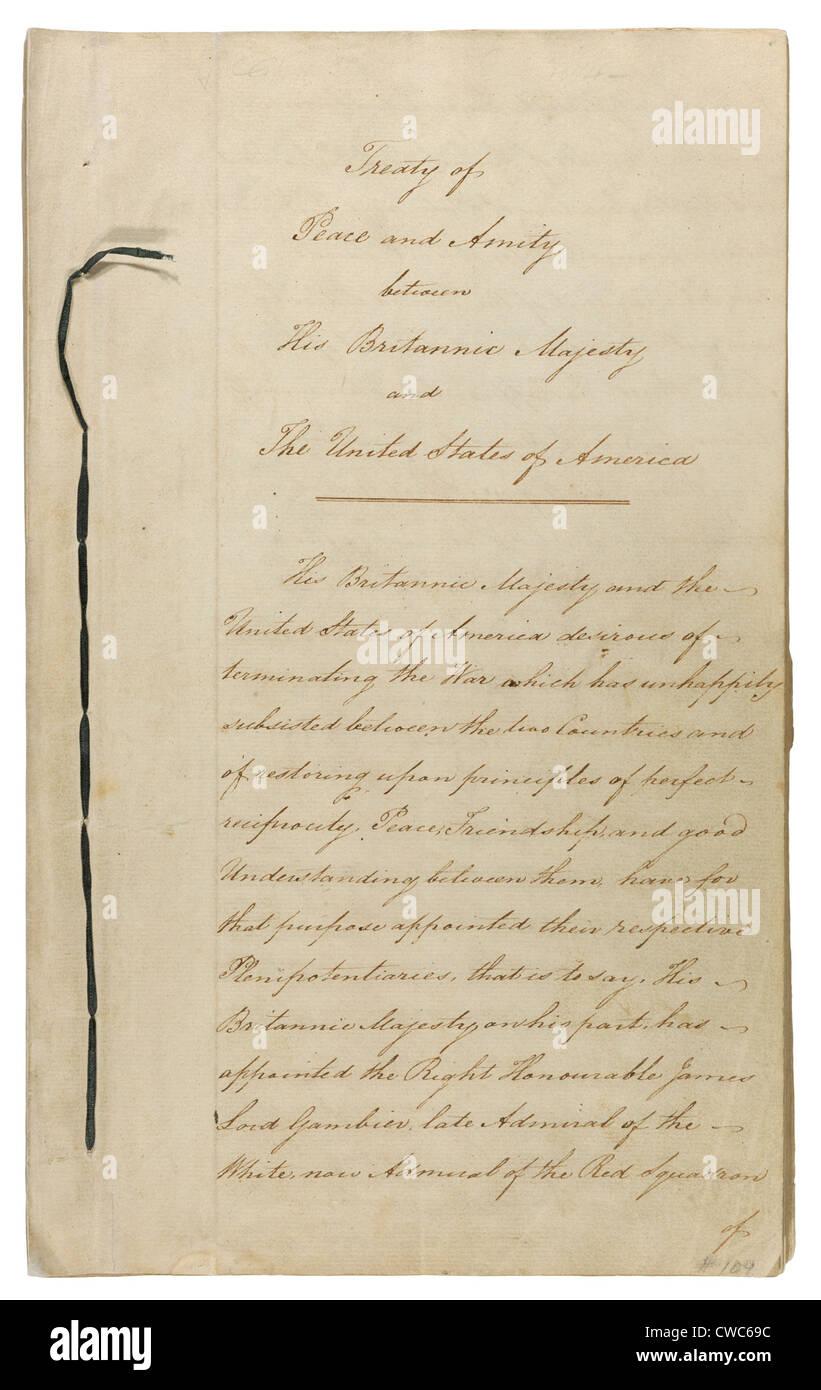 Treaty of
Peace and Amity
between
His Britannic Majesty
and
The United States of America
His Britannic Majesty and the
United States of America desirous of
terminating the War which has unhappily
subsisted between the two Countries and
of restoring upon principles of perfect
reciprocity, Peace, Friendship, and good
Understanding between them, have for
that purpose appointed their respective
Plenipotentiaries, that is to say, His
Britannic Majesty on his part, has
appointed the Right Honourable James
Lord Gambier, late Admiral of the
White, now Admiral of the Red Squadron
of
# 109
alamy
alamy
alamy
alamy
a
a
a
a
a
a
a
a
a
alamy
Image ID: CWC69C
www.alamy.com